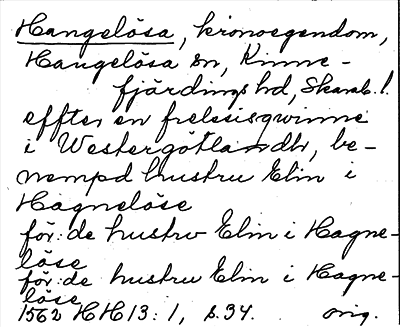 Hangelösa, kronoegendom,
Hangelösa sn, Kinne-
fjärdings hd, Skarab. l.
effter en frelssisqwinne
i Westergötlandh, be-
nempd hustru Elin i
Hagneløse
för: de hustrv Elin i Hagne-
løse
för: de hustru Elin i Hagne-
løse
1562 HH 13: 1, s. 34. orig.